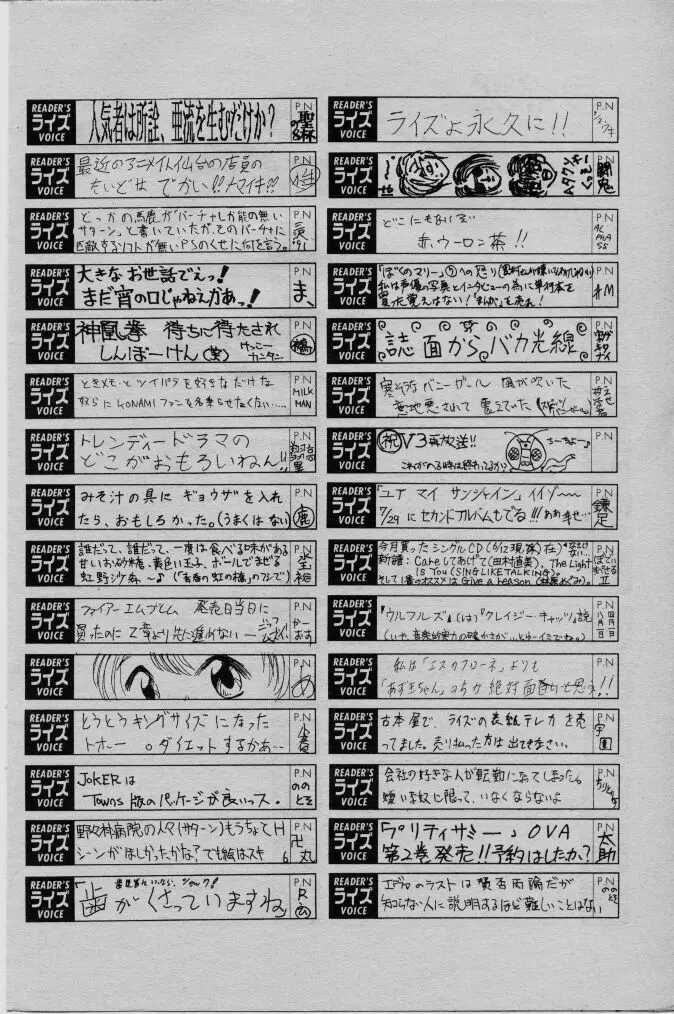 READER'S ライズ VOICE
人気者は所詮、亜流を生むだけか?
P.N
READER'S ライズ VOICE
最近のアニメイト仙台の店員の
P.N
READER'S ライズ VOICE
どっかの馬鹿が「バーチャしか能の無い
サターン」と書いていたが、そのバーチャに
匹敵するソフトが無いPSのくせに何を言う。
P.N
'91
READER'S ライズ VOICE
大きなお世話でえっ!
まだ宵の口じゃねえかあっ!
P.N
ま、
READER'S ライズ VOICE
神凰拳 待ちに待たされ
しんぼーけん(笑)
P.N
READER'S ライズ VOICE
ときメモとツインパラを好きなだけな
奴らにKONAMIファンを名乗らせなくない……
P.N
MILK
MAN
READER'S ライズ VOICE
トレンディードラマの
どこがおもろいねん!!
P.N
READER'S ライズ VOICE
みそ汁の具に ギョウザを入れ
たら、おもしろかった。(うまくはない)
P.N
鹿
READER'S ライズ VOICE
誰だって、誰だって、一度は食べる味がある
甘いお砂糖、黄色い玉子、ボールでまぜる
虹野沙希〜♪(「青春の虹の橋」のフシで)
P.N
READER'S ライズ VOICE
ファイアーエムブレム 発売日当日に
買ったのに 2章より先に進めない
P.N
かー
おす
READER'S ライズ VOICE
め
READER'S ライズ VOICE
とうとうキングサイズになった
トホー。ダイエットするかあ…
P.N
READER'S ライズ VOICE
JOKERは
Towns版のパッケージが良いっス。
P.N
ののとそ
READER'S ライズ VOICE
野々村病院の人々(サターン)もうちょてH
シーンがほしかったかな?でも絵はスキ
P.N
卍丸
6
READER'S ライズ VOICE
「歯がくさっていますね」
P.N
READER'S ライズ VOICE
ライズよ永久に!!
P.N
READER'S ライズ VOICE
P.N
READER'S ライズ VOICE
どこにもないぞ
赤ウーロン茶!!
P.N
AL
PHA
SS
READER'S ライズ VOICE
私は声優の写真とインタビューの為に単行本を
買った覚えはない!「まんが」を売れ!
P.N
READER'S ライズ VOICE
誌面からバカ光線
P.N
READER'S ライズ VOICE
バニーガール 風が吹いた
P.N
READER'S ライズ VOICE
祝 V3再放送!!
これがのる時は終わってるかな
P.N
READER'S ライズ VOICE
「ユア マイ サンシャイン」イイゾ〜〜
7/29 にセカンドアルバムもでる!!!ああ幸せ…
P.N
鎌足
READER'S ライズ VOICE
今月買ったシングルCD(6/12現在)
新譜:Careしてあげて(田村直美)、The Light
Is You(SING LIKE TALKING)。
そして1番のオススメはGive a reason(林原めぐみ)。
P.N
READER'S ライズ VOICE
『ウルフルズ』(は)『クレイジーキャッツ』説
P.N
READER'S ライズ VOICE
私は「エスカフローネ」よりも
「あずきちゃん」のほうが絶対面白いと思え!!
P.N
READER'S ライズ VOICE
古本屋で、ライズの表紙テレカを売
ってました。売り払った方は出てきなさい。
P.N
READER'S ライズ VOICE
会社の好きな人が転勤になってしまった。
嫌いな奴に限って、いなくならないよ
P.N
READER'S ライズ VOICE
「プリティサミー」OVA
第2巻発売!!予約はしたか?
P.N
太助
READER'S ライズ VOICE
エヴァのラストは賛否両論だが
知らない人に説明するほど難しいことはない
P.N
ののとそ